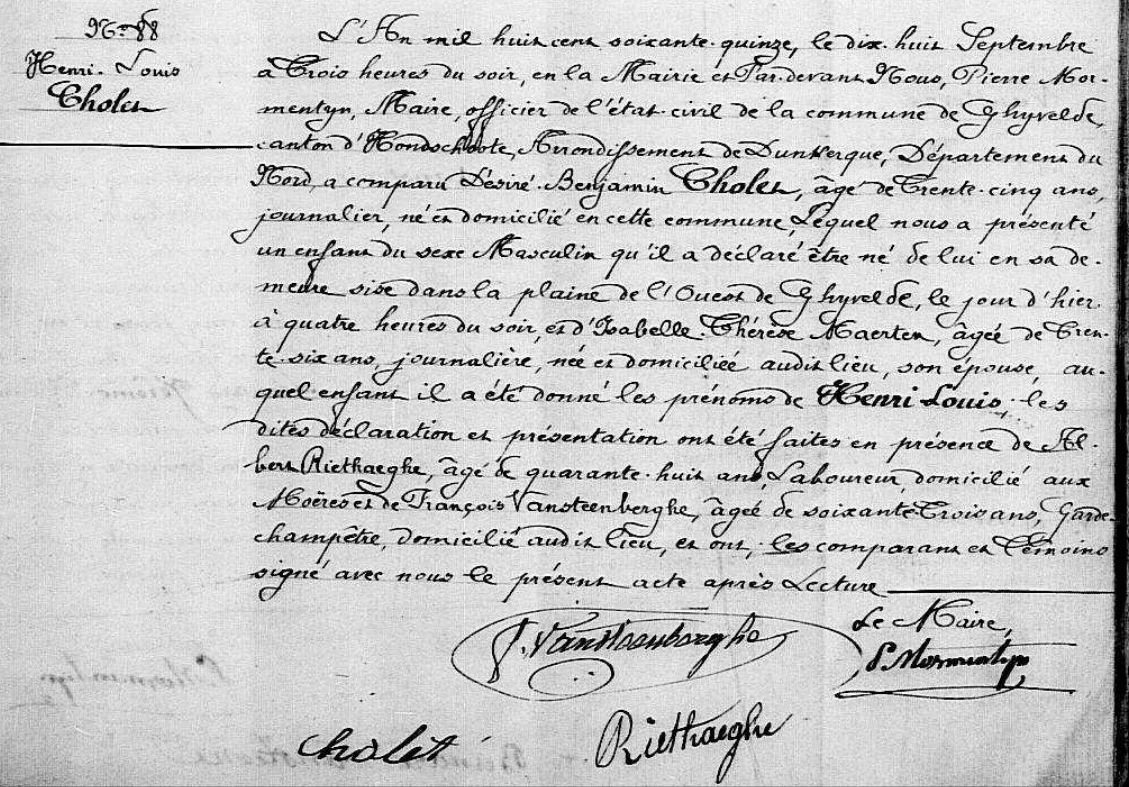 N.º 88
Henri. Louis
Cholet
L'An mil huit cent soixante-quinze, le dix-huit Septembre
à Trois heures du soir, en la Mairie et Par-devant Nous, Pierre Mor-
mentyn, Maire, officier de l'état-civil de la commune de Ghyvelde,
canton d'Hondschoote, Arrondissement de Dunkerque, Département du
Nord, a comparu Désiré-Benjamin Cholet, âgé de Trente-cinq ans,
journalier, né et domicilié en cette commune, Lequel nous a présenté
un enfant du sexe Masculin qu'il a déclaré être né de lui en sa de-
meure sise dans la plaine de l'Ouest de Ghyvelde, le jour d'hier
à quatre heures du soir, et d'Isabelle-Thérèse Maerten, âgée de Tren-
te-six ans, journalière, née et domiciliée audit lieu, son épouse, au-
quel enfant il a été donné les prénoms de Henri Louis. les
dites déclaration et présentation ont été faites en présence de Al-
bert Riethaeghe, âgé de quarante-huit ans, Laboureur, domicilié aux
Moëres et de François Vansteenberghe, âgéé de soixante-Trois ans, Garde-
champêtre, domicilié audit lieu, et ont, les comparant et Témoins
signé avec nous le présent acte après Lecture
Le Maire,
f. Vansteenberghe
P. Mormentyn
Cholet
Riethaeghe